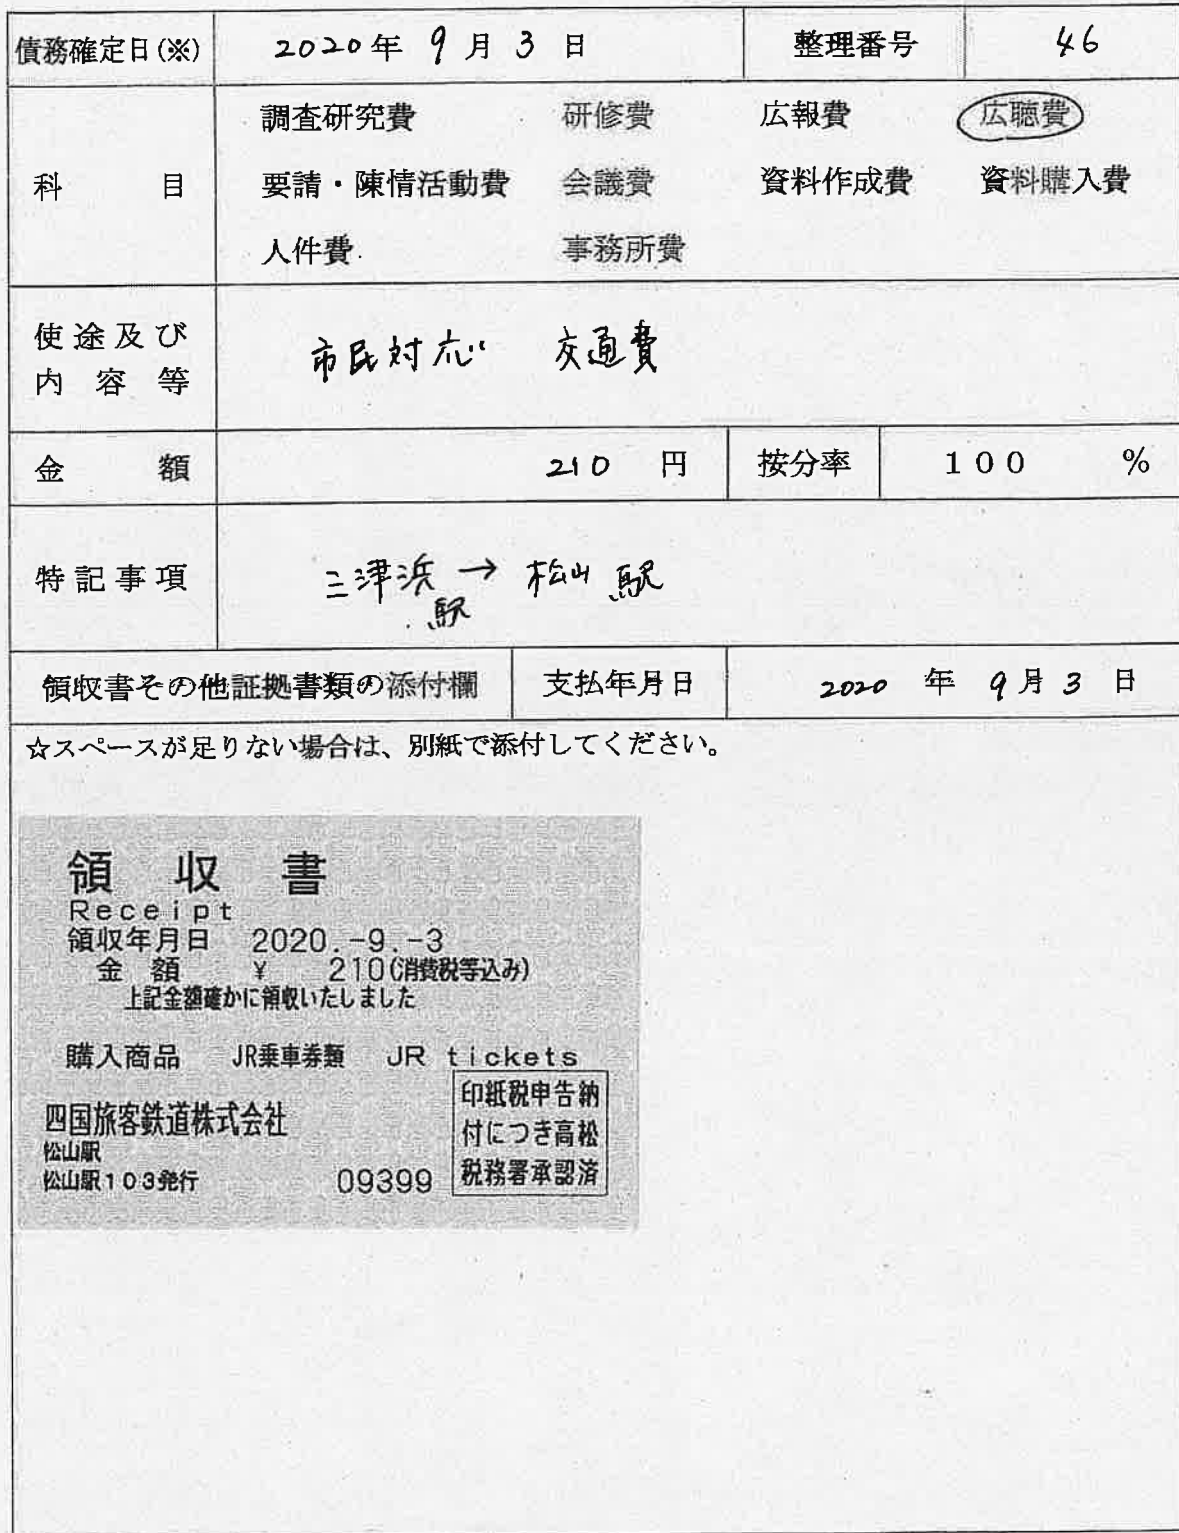 債務確定日(※) 2020年 9月 3日 整理番号 46
科目 調査研究費 研修費 広報費 広聴費
要請・陳情活動費 会議費 資料作成費 資料購入費
人件費 事務所費
使途及び
内容等
市民対応 交通費
金額 210 円 按分率 100 %
特記事項 三津浜駅 → 松山駅
領収書その他証拠書類の添付欄 支払年月日 2020 年 9月 3日
☆スペースが足りない場合は、別紙で添付してください。
領収書
Receipt
領収年月日 2020.-9.-3
金額 ¥ 210(消費税等込み)
上記金額確かに領収いたしました
購入商品 JR乗車券類 JR tickets
四国旅客鉄道株式会社
松山駅
松山駅103発行 09399
印紙税申告納
付につき高松
税務署承認済